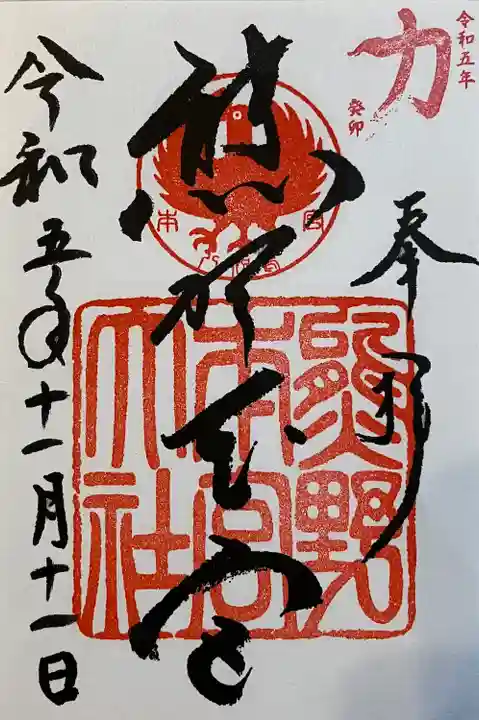 令和五年
癸卯
力
奉拝
熊野本宮
熊野
本宮
大社
令和五年十一月十一日